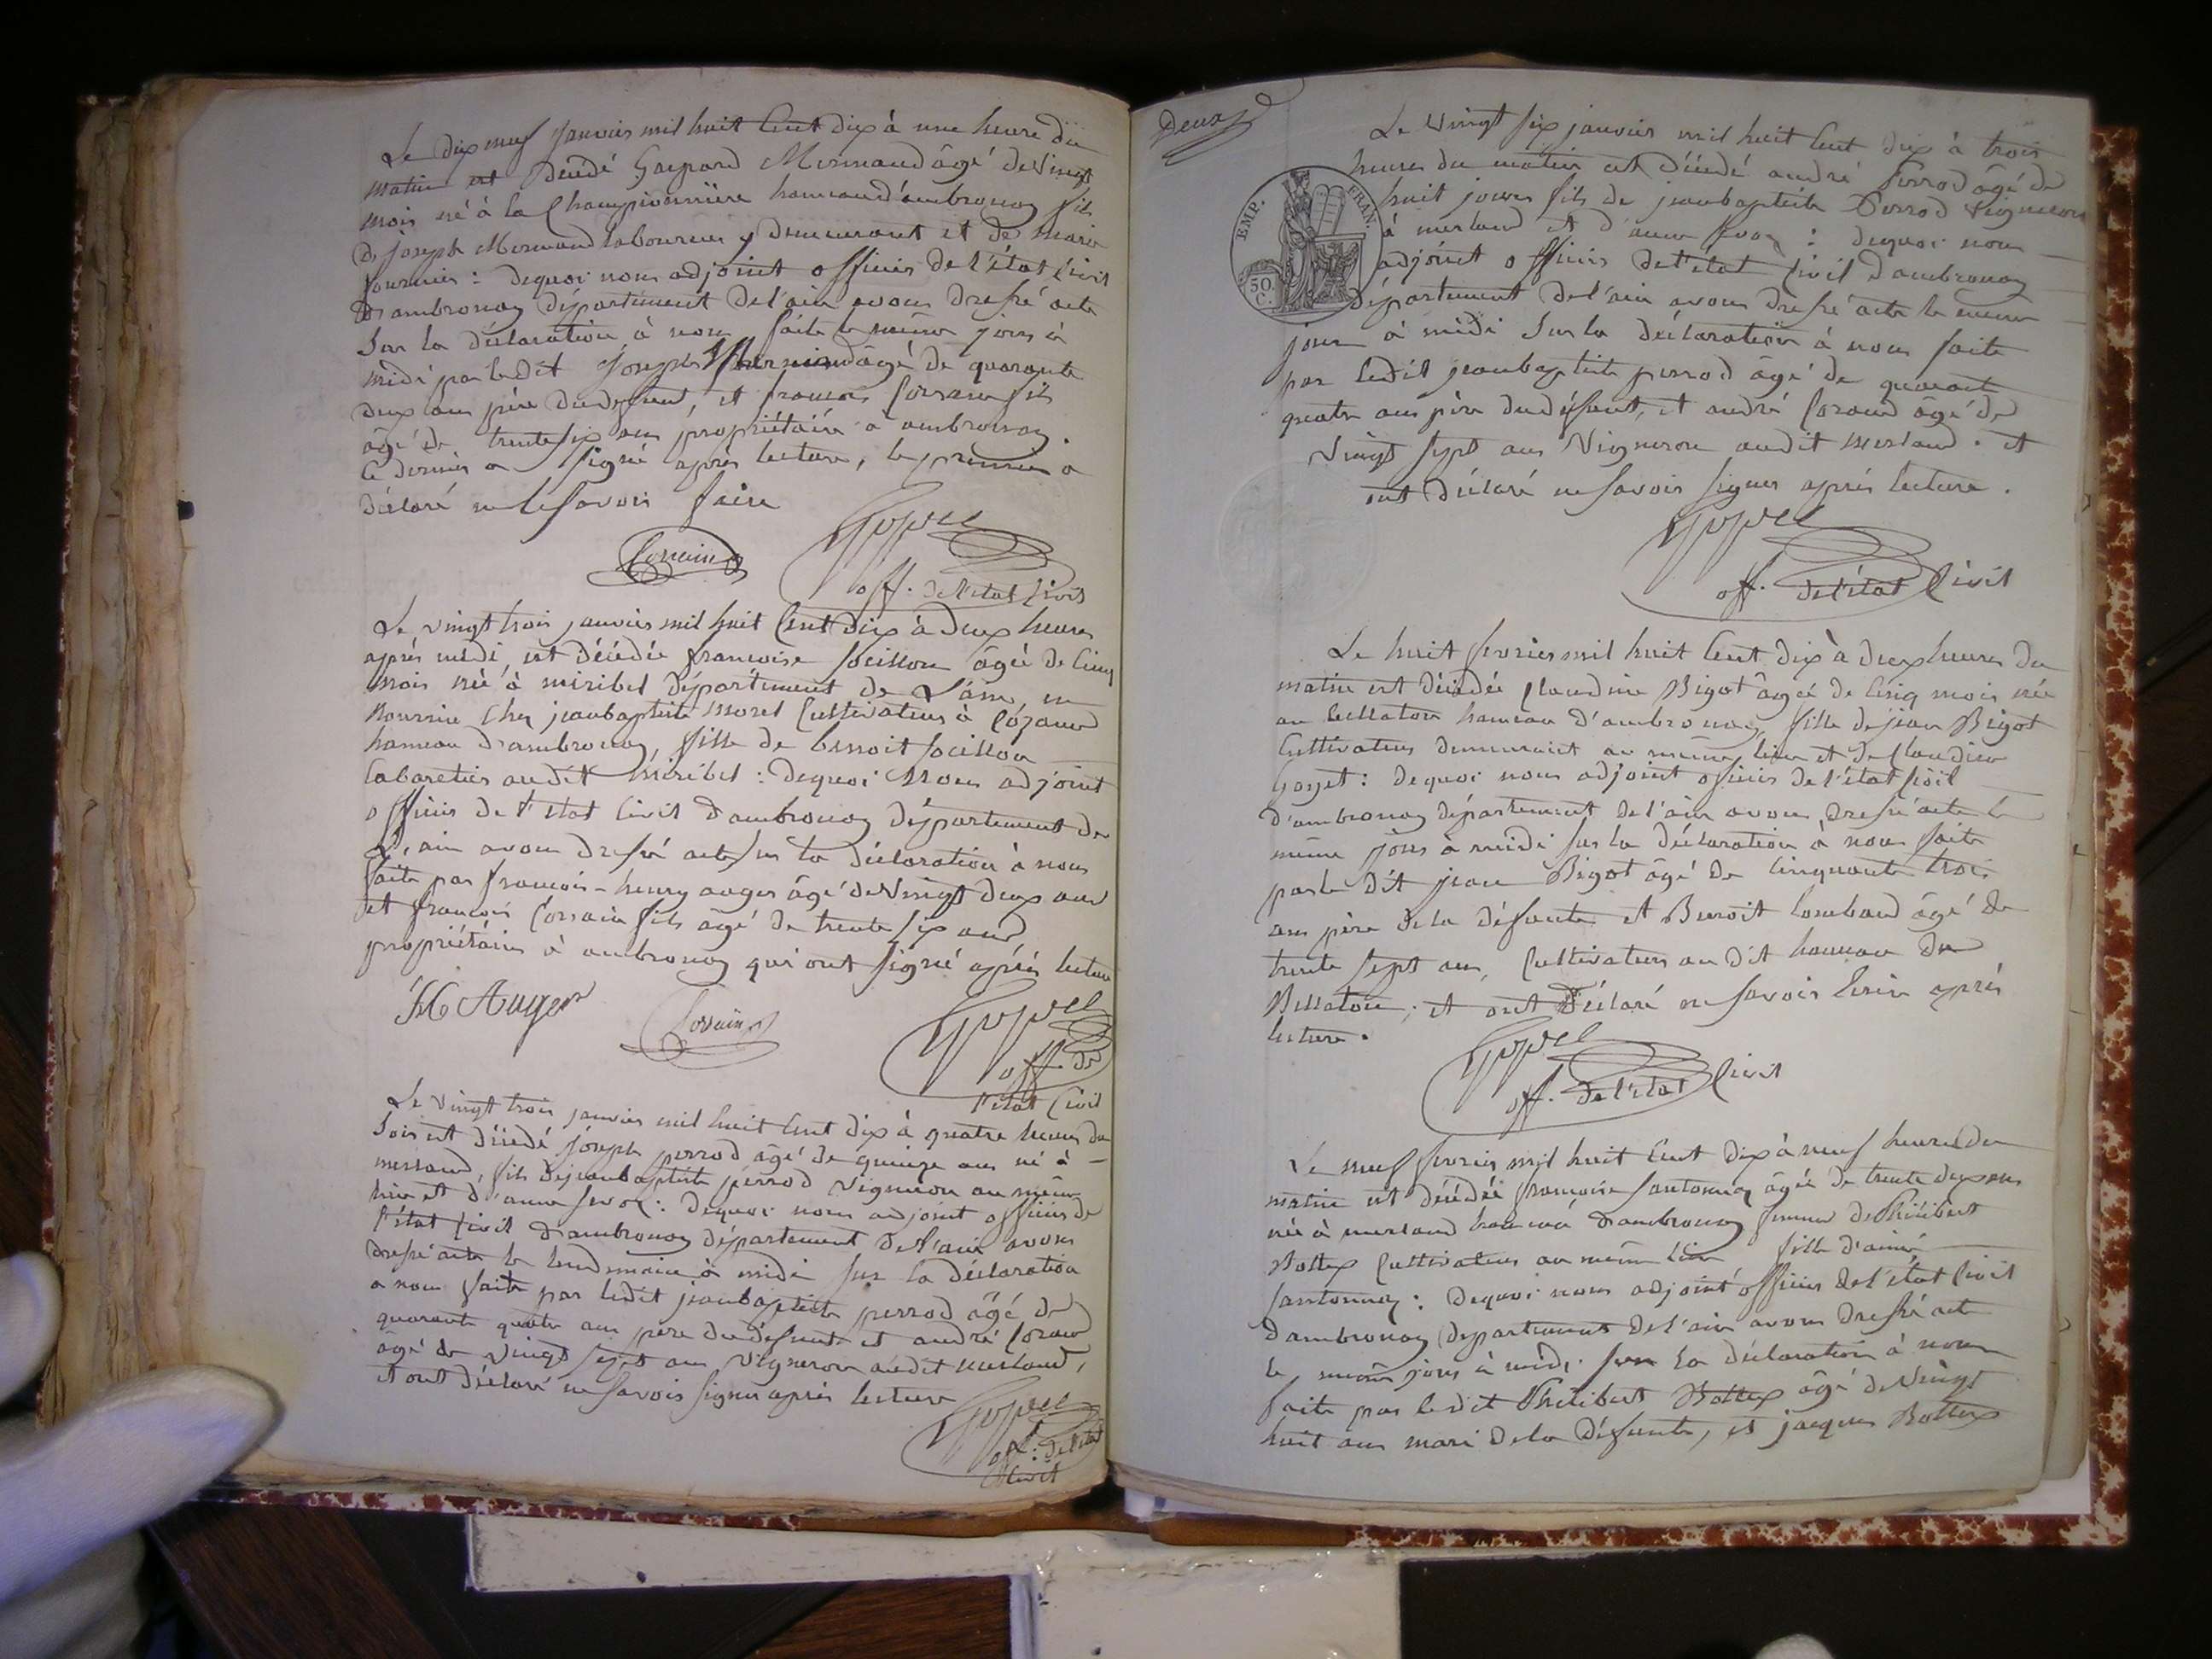 Le dix neuf janvier mil huit Cent dix à une heure du
matin est décédé Gaspard Mermand âgé de Vingt
mois né à la Championnière hameau d'ambronay fils
de Joseph Mermand laboureur y demeurant et de marie
fournier : dequoi nous adjoint officier de l'état Civil
d'ambronay département de l'ain avons dressé acte
Sur la déclaration à nous faite le même jour à
midi par ledit Joseph Mermand âgé de quarante
deux ans père du defunt, et francois Lorrain fils
âgé de trente six ans propriétaire à ambronay.
le dernier a signé après lecture, le premier a
déclaré ne le savoir faire
Lorrain
off. de l'état Civil
Le vingt trois janvier mil huit Cent dix à deux heures
après midi, est décédée francoise âgée de Cinq
mois née à miribel département de L'ain, en
Nourrice Chez jeanbaptiste morel Cultivateur à
hameau d'ambronay, fille de benoit
Cabaretier audit miribel : dequoi Nous adjoint
officier de l'état Civil d'ambronay département de
L'ain avons dressé acte sur la déclaration à nous
faite par francois-henry auger âgé de Vingt deux ans
et francois Lorrain fils âgé de trente six ans
propriétaires à ambronay qui ont signé après lecture
H Auger
Lorrain
off. de
l'état Civil
Le vingt trois janvier mil huit Cent dix à quatre heures du
Soir est décédé joseph perrod âgé de quinze ans né à
merland, fils de jeanbaptiste perrod vigneron au même
lieu et d'anne : dequoi nous adjoint officier de
l'état Civil d'ambronay département de l'ain avons
dressé acte le lendemain à midi sur la déclaration
a nous faite par ledit jeanbaptiste perrod âgé de
quarante quatre ans père du defunt et andré
âgé de vingt sept ans vigneron audit merland,
et ont déclaré ne savoir signer après lecture
off. de l'état
Civil
Deux
EMP. FRAN.
50 C.
Le Vingt six janvier mil huit Cent dix à trois
heures du matin est décédé andré Perrod âgé de
huit jours fils de jeanbaptiste Perrod Vigneron
à merland et d'anne : dequoi nous
adjoint officier de l'état Civil d'ambronay
département de l'ain avons dressé acte le même
jour à midi Sur la déclaration à nous faite
par ledit jeanbaptiste perrod âgé de quarante
quatre ans père du défunt, et andré âgé de
Vingt sept ans Vigneron audit merland. et
ont déclaré ne savoir signer après lecture.
off. de l'état Civil
Le huit fevrier mil huit Cent dix à deux heures du
matin est décédée Claudine Bigot âgée de Cinq mois née
au hameau d'ambronay, fille de jean Bigot
Cultivateur demeurant au même lieu et de Claudine
Goyet : dequoi nous adjoint officier de l'état Civil
d'ambronay département de l'ain avons dressé acte le
même jour à midi sur la déclaration à nous faite
par le dit jean Bigot âgé de Cinquante trois
ans père de la défunte et Benoit âgé de
trente sept ans, Cultivateur au dit hameau du
; et ont déclaré ne savoir écrire après
lecture.
off. de l'état Civil
Le neuf fevrier mil huit Cent dix à neuf heures du
matin est décédée francoise Santonnay âgée de trente deux ans
née à merland hameau d'ambronay femme de Philibert
Bottex Cultivateur au même lieu fille d'aimé
Santonnay : dequoi nous adjoint officier de l'état Civil
d'ambronay département de l'ain avons dressé acte
le même jour à midi sur la déclaration à nous
faite par ledit Philibert Bottex âgé de Vingt
huit ans mari de la défunte, et jacques Bottex